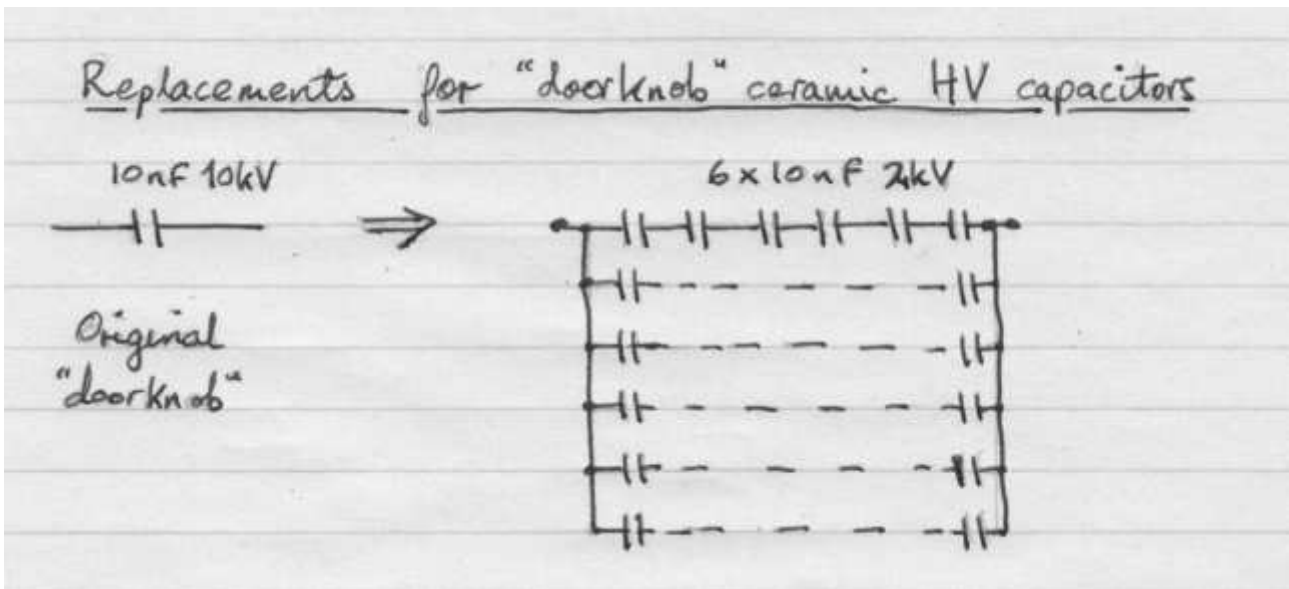 Replacements for "doorknob" ceramic HV capacitors
10nF 10kV
6x10nF 2kV
Original
"doorknob"